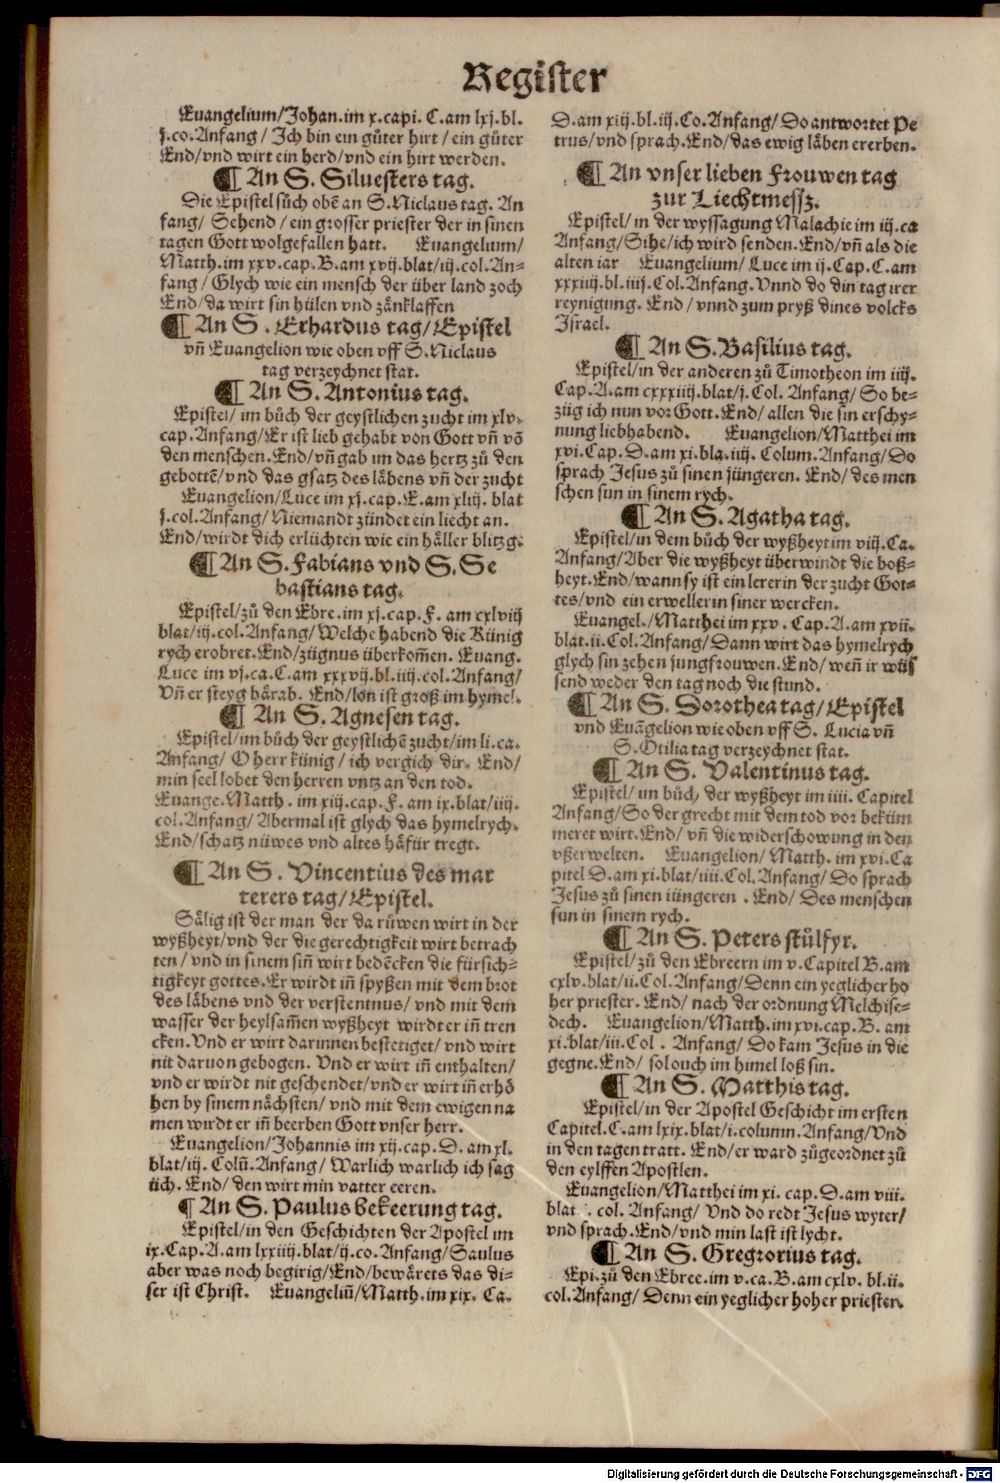 Register
Euangelium/Johan.im x.capi. C.am lxj.bl.
j.co.Anfang / Jch bin ein gůter hirt / ein gůter
End/vnd wirt ein herd/vnd ein hirt werden.
¶ An S. Siluesters tag.
Die Epistel sůch obē an S.Niclaus tag. An
fang/ Sehend / ein grosser priester der in sinen
tagen Gott wolgefallen hatt. Euangelium/
Matth.im xxv.cap.B.am xvij.blat/ij.col.An-
fang / Glych wie ein mensch der über land zoch
End/da wirt sin hülen vnd zänklaffen
¶ An S. Erhardus tag/Epistel
vñ Euangelion wie oben vff S.Niclaus
tag verzeychnet stat.
¶ An S. Antonius tag.
Epistel/ im bůch der geystlichen zucht im xlv.
cap.Anfang/Er ist lieb gehabt von Gott vñ vō
den menschen.End/vñ gab im das hertz zů den
gebottē/vnd das gsatz des läbens vñ der zucht
Euangelion/Luce im xj.cap.E.am xlij. blat
j.col.Anfang/Niemandt zündet ein liecht an.
End/wirdt dich erlüchten wie ein häller blitzg.
¶ An S.Fabians vnd S.Se
bastians tag.
Epistel/zů den Ebre.im xj.cap.F. am cxlviij
blat/ij.col.Anfang/Welche habend die Künig
rych erobret.End/zügnus überkom̃en. Euang.
Luce im vj.ca.C.am xxxvij.bl.iiij.col.Anfang/
Vñ er steyg härab. End/lon ist groß im hymel.
¶ An S. Agnesen tag.
Epistel/im bůch der geystlichē zucht/im li.ca.
Anfang/ O herr künig / ich vergich dir. End/
min seel lobet den herren vntz an den tod.
Euange.Matth. im xiij.cap.F. am ix.blat/iiij.
col.Anfang/ Abermal ist glych das hymelrych.
End/schatz nüwes vnd altes häfür tregt.
¶ An S. Vincentius des mar
terers tag/Epistel.
Sälig ist der man der da růwen wirt in der
wyßheyt/vnd der die gerechtigkeit wirt betrach
ten / vnd in sinem siñ wirt bedēcken die fürsich-
tigkeyt gottes.Er wirdt iñ spyßen mit dem brot
des läbens vnd der verstentnus/ vnd mit dem
wasser der heylsam̃en wyßheyt wirdt er iñ tren
cken.Vnd er wirt darinnen bestetiget/ vnd wirt
nit daruon gebogen. Vnd er wirt iñ enthalten/
vnd er wirdt nit geschendet/vnd er wirt iñ erhö
hen by sinem nächsten/ vnd mit dem ewigen na
men wirdt er im̃ beerben Gott vnser herr.
Euangelion/Johannis im xij.cap.D.am xl.
blat/ij. Colũ.Anfang/ Warlich warlich ich sag
üch. End/ den wirt min vatter eeren.
¶ An S. Paulus bekeerung tag.
Epistel/in den Geschichten der Apostel im
ix.Cap.A.am lxxiiij.blat/ij.co.Anfang/Saulus
aber was noch begirig/End/bewärets das di-
ser ist Christ. Euangeliũ/Matth.im xix. Ca.
D.am xiij.bl.iij.Co.Anfang/Do antwortet Pe
trus/vnd sprach.End/das ewig läben ererben.
¶ An vnser lieben Frouwen tag
zur Liechtmessz.
Epistel/ in der wyssagung Malachie im iij.ca
Anfang/Sihe/ich wird senden.End/vñ als die
alten iar Euangelium/ Luce im ij.Cap.C.am
xxxiij.bl.iiij.Col.Anfang.Vnnd do din tag irer
reynigung. End / vnnd zum pryß dines volcks
Jsrael.
¶ An S.Basilius tag.
Epistel/in der anderen zů Timotheon im iiij.
Cap.A.am cxxxiij.blat/j.Col. Anfang/ So be-
züg ich nun vor Gott.End/ allen die sin erschy-
nung liebhabend. Euangelion/Matthei im
xvi.Cap.D.am xi.bla.iiij. Colum.Anfang/ Do
sprach Jesus zů sinen jüngeren. End/des men
schen sun in sinem rych.
¶ An S. Agatha tag.
Epistel/in dem bůch der wyßheyt im viij.Ca.
Anfang/Aber die wyßheyt überwindt die boß-
heyt.End/wann sy ist ein lererin der zucht Got-
tes/vnd ein erwellerin siner wercken.
Euangel./Matthei im xxv. Cap.A.am xvii.
blat.ii.Col.Anfang/Dann wirt das hymelrych
glych sin zehen jungfrouwen.End/ weñ ir wüs
send weder den tag noch die stund.
¶ An S. Dorothea tag/Epistel
vnd Euāgelion wie oben vff S. Lucia vñ
S.Otilia tag verzeychnet stat.
¶ An S. Valentinus tag.
Epistel/ im bůch der wyßheyt im iiii. Capitel
Anfang/So der grecht mit dem tod vor bekim
meret wirt.End/ vñ die widerschowung in den
vßerwelten. Euangelion/ Matth. im xvi.Ca
pitel D.am xi.blat/iiii.Col.Anfang/ Do sprach
Jesus zů sinen jüngeren . End/ Des menschen
sun in sinem rych.
¶ An S. Peters stůlfyr.
Epistel/zů den Ebreern im v.Capitel B.am
cxlv.blat/ii.Col.Anfang/Denn ein yeglicher ho
her priester. End/ nach der ordnung Melchise-
dech. Euangelion/Matth.im xvi.cap.B. am
xi.blat/iii.Col . Anfang/ Do kam Jesus in die
gegne.End/ sol ouch im himel loß sin.
¶ An S. Matthis tag.
Epistel/in der Apostel Geschicht im ersten
Capitel.C.am lxix.blat/i.column.Anfang/Vnd
in den tagen tratt. End/er ward zůgeordnet zů
den eylffen Apostlen.
Euangelion/Matthei im xi. cap.D.am viii.
blat col. Anfang/ Vnd do redt Jesus wyter/
vnd sprach.End/vnd min last ist lycht.
¶ An S. Gregrorius tag.
Epi.zů den Ebree.im v.ca.B.am cxlv. bl.ii.
col.Anfang/ Denn ein yeglicher hoher priester.
Digitalisierung gefördert durch die Deutsche Forschungsgemeinschaft - DFG